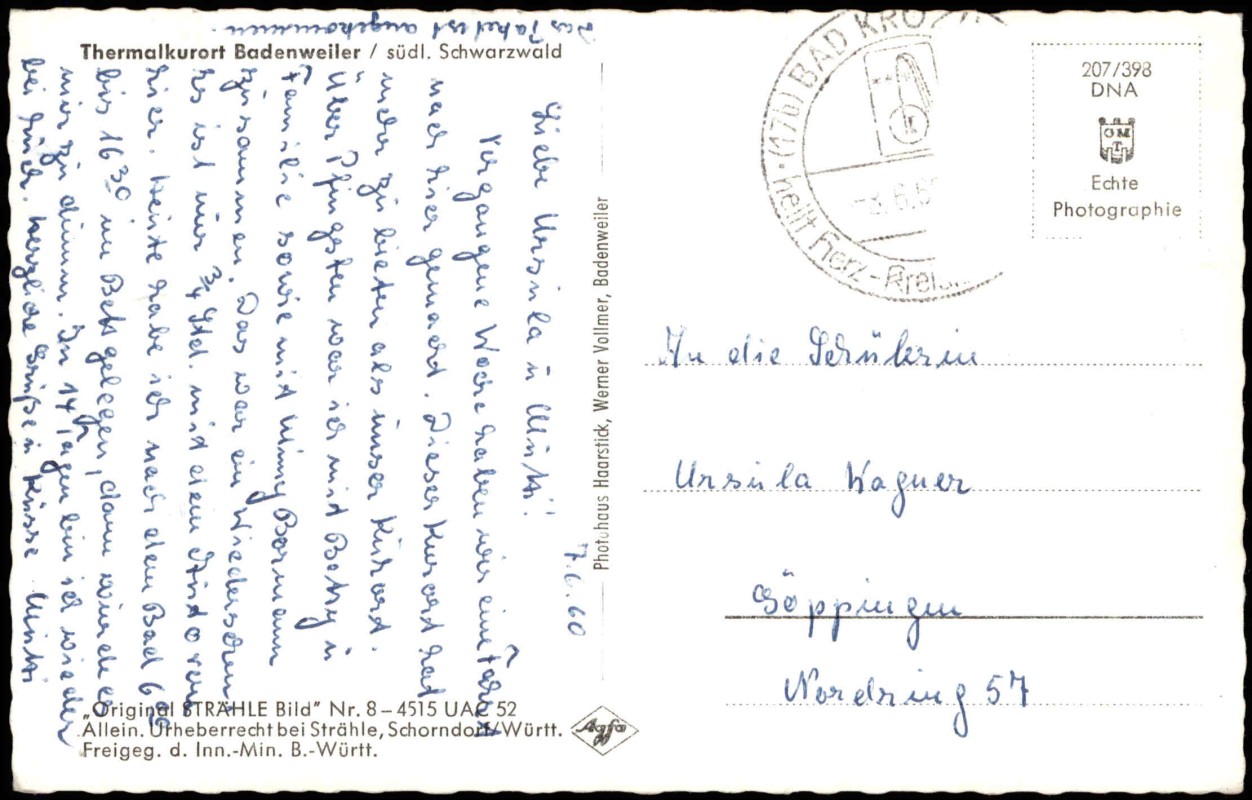 Das Paket ist angekommen
Thermalkurort Badenweiler / südl. Schwarzwald
7.6.60
Liebe Ursula u Mutti!
Vergangene Woche haben wir eine Fahrt
nach hier gemacht. Dieser Kurort hat
mehr zu bieten als unser Kurort.
Über Pfingsten war ich mit Betty u
Familie sowie mit Minny Bormann
zusammen. Das war ein Wiedersehen!
Es ist nur ¾ Std. mit dem Auto von
hier. Heute habe ich nach dem Bad 6
bis 16³⁰ im Bett gelegen, dann wurde es
mir zu dumm. In 14 Tagen bin ich wieder
bei Euch. Herzliche Grüße u Küsse Mutti
„Original STRÄHLE Bild" Nr. 8 – 4515 UAE 52
Allein. Urheberrecht bei Strähle, Schorndorf/Württ.
Freigeg. d. Inn.-Min. B.-Württ.
Agfa
Photohaus Haarstick, Werner Vollmer, Badenweiler
(17b) BAD KRO
6.6
heilt Herz-Krei
207/398
DNA
Echte
Photographie
An die Schülerin
Ursula Wagner
Göppingen
Nordring 57